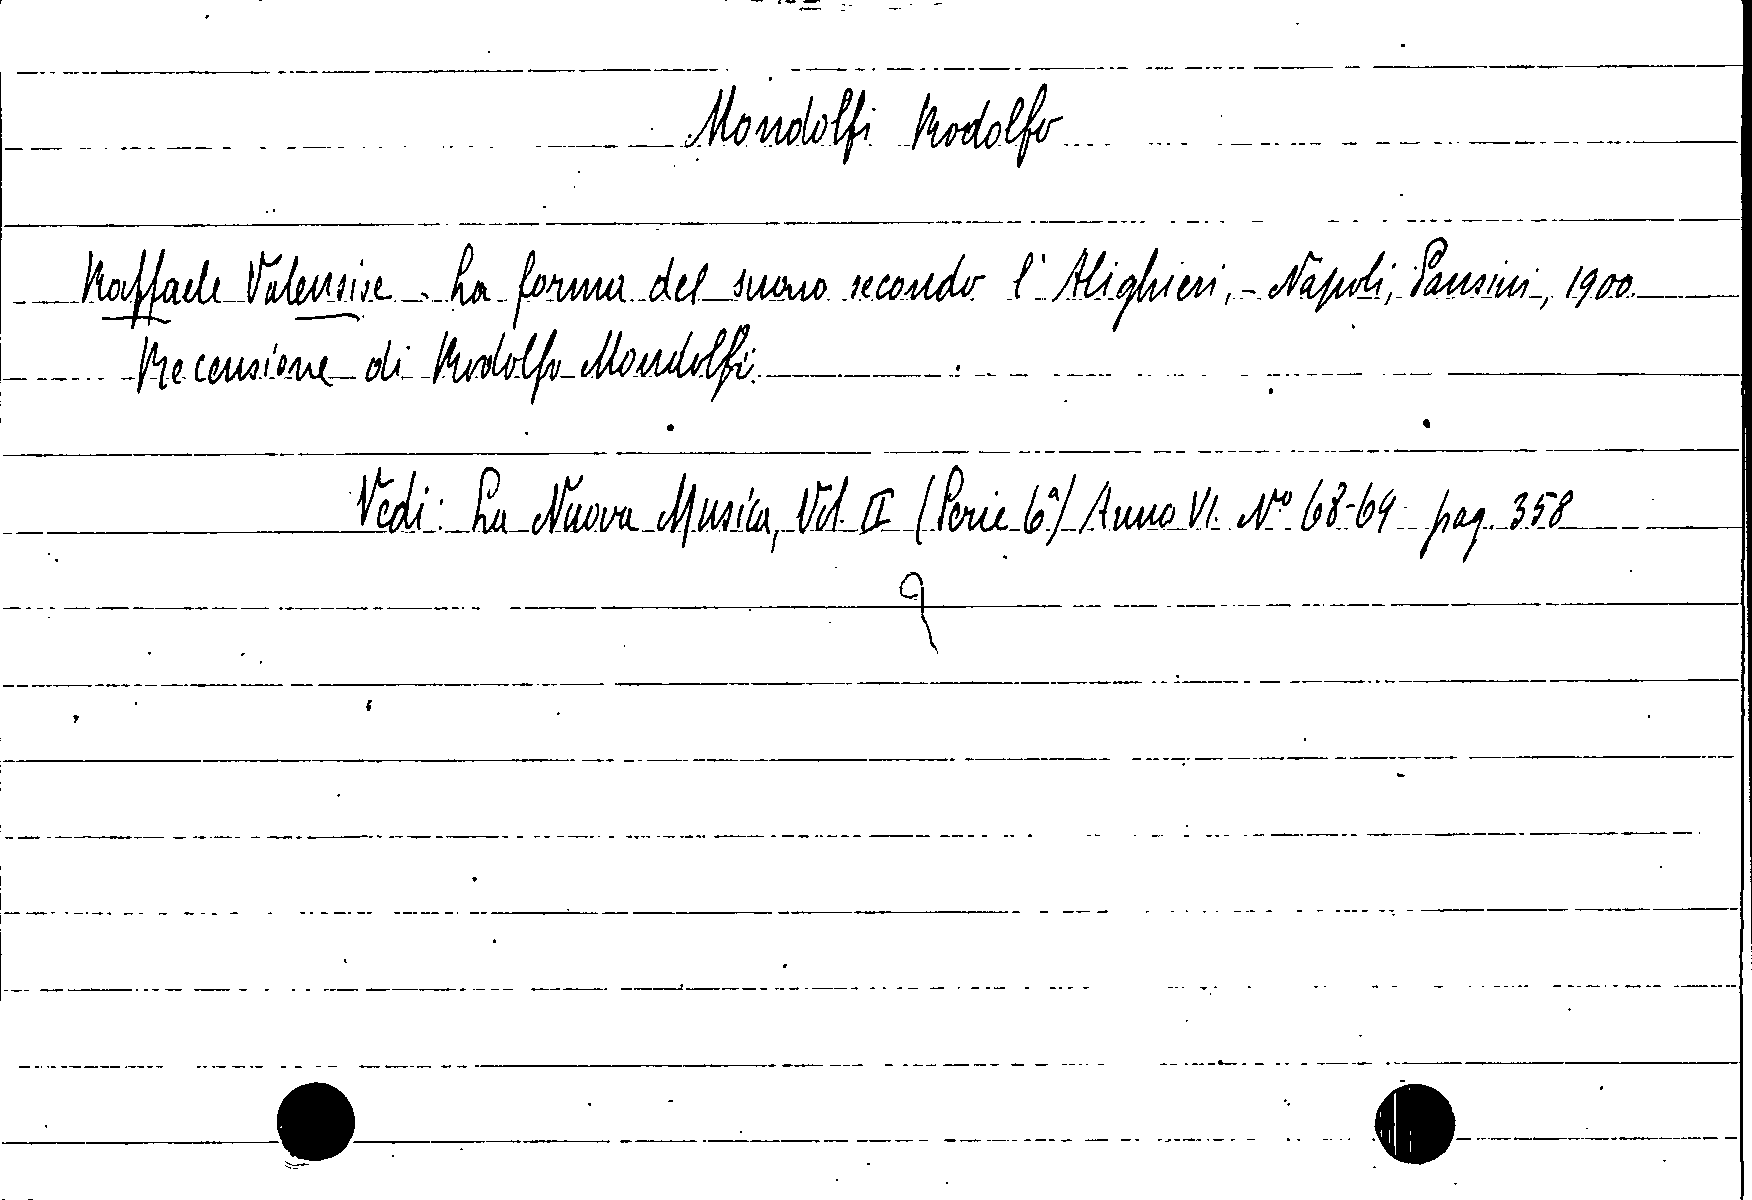 Mondolfi Rodolfo
Raffaele Valensise - La forma del suono secondo l'Alighieri, - Napoli, Pansini, 1900.
Recensione di Rodolfo Mondolfi.
Vedi: La Nuova Musica, Vol. II (Serie 6ª) Anno VI. Nº 68-69 pag. 358